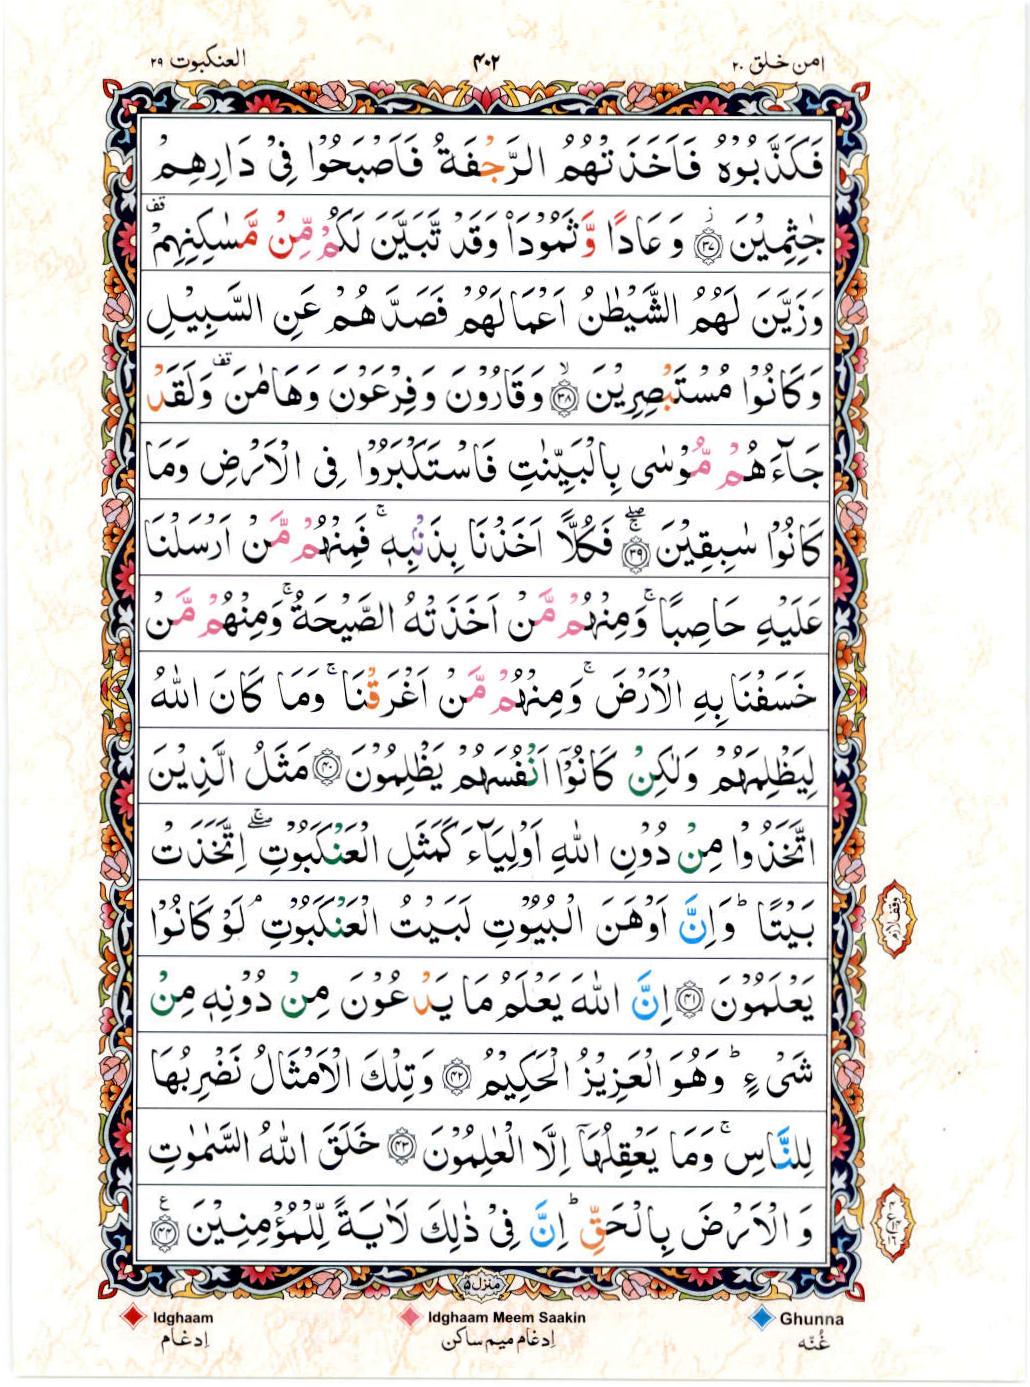 امن خلق ۲۰
۴۰۲
العنکبوت ۲۹
فَكَذَّبُوْهُ فَاَخَذَتْهُمُ الرَّجْفَةُ فَاَصْبَحُوْا فِیْ دَارِهِمْ
جٰثِمِیْنَ ۙ﴿۳۷﴾ وَ عَادًا وَّ ثَمُوْدَاۡ وَقَدْ تَّبَیَّنَ لَكُمْ مِّنْ مَّسٰكِنِهِمْ ۫
وَزَیَّنَ لَهُمُ الشَّیْطٰنُ اَعْمَالَهُمْ فَصَدَّهُمْ عَنِ السَّبِیْلِ
وَكَانُوْا مُسْتَبْصِرِیْنَ ۙ﴿۳۸﴾ وَقَارُوْنَ وَفِرْعَوْنَ وَهَامٰنَ ۫ وَلَقَدْ
جَآءَهُمْ مُّوْسٰی بِالْبَیِّنٰتِ فَاسْتَكْبَرُوْا فِی الْاَرْضِ وَمَا
كَانُوْا سٰبِقِیْنَ ﴿۳۹﴾ۚۖ فَكُلًّا اَخَذْنَا بِذَنْۢبِهٖ ۚ فَمِنْهُمْ مَّنْ اَرْسَلْنَا
عَلَیْهِ حَاصِبًا ۚ وَمِنْهُمْ مَّنْ اَخَذَتْهُ الصَّیْحَةُ ۚ وَمِنْهُمْ مَّنْ
خَسَفْنَا بِهِ الْاَرْضَ ۚ وَمِنْهُمْ مَّنْ اَغْرَقْنَا ۚ وَمَا كَانَ اللّٰهُ
لِیَظْلِمَهُمْ وَلٰكِنْ كَانُوْۤا اَنْفُسَهُمْ یَظْلِمُوْنَ ﴿۴۰﴾ مَثَلُ الَّذِیْنَ
اتَّخَذُوْا مِنْ دُوْنِ اللّٰهِ اَوْلِیَآءَ كَمَثَلِ الْعَنْكَبُوْتِ ۚۖ اِتَّخَذَتْ
بَیْتًا ؕ وَاِنَّ اَوْهَنَ الْبُیُوْتِ لَبَیْتُ الْعَنْكَبُوْتِ ۘ لَوْ كَانُوْا
وقف لازم
یَعْلَمُوْنَ ﴿۴۱﴾ اِنَّ اللّٰهَ یَعْلَمُ مَا یَدْعُوْنَ مِنْ دُوْنِهٖ مِنْ
شَیْءٍ ؕ وَهُوَ الْعَزِیْزُ الْحَكِیْمُ ﴿۴۲﴾ وَتِلْكَ الْاَمْثَالُ نَضْرِبُهَا
لِلنَّاسِ ۚ وَمَا یَعْقِلُهَاۤ اِلَّا الْعٰلِمُوْنَ ﴿۴۳﴾ خَلَقَ اللّٰهُ السَّمٰوٰتِ
وَ الْاَرْضَ بِالْحَقِّ ؕ اِنَّ فِیْ ذٰلِكَ لَاٰیَةً لِّلْمُؤْمِنِیْنَ ﴿۴۴﴾ ع
منزل ۵
Idghaam
Idghaam Meem Saakin
Ghunna
اِدغام
اِدغام میم ساکن
غُنّه